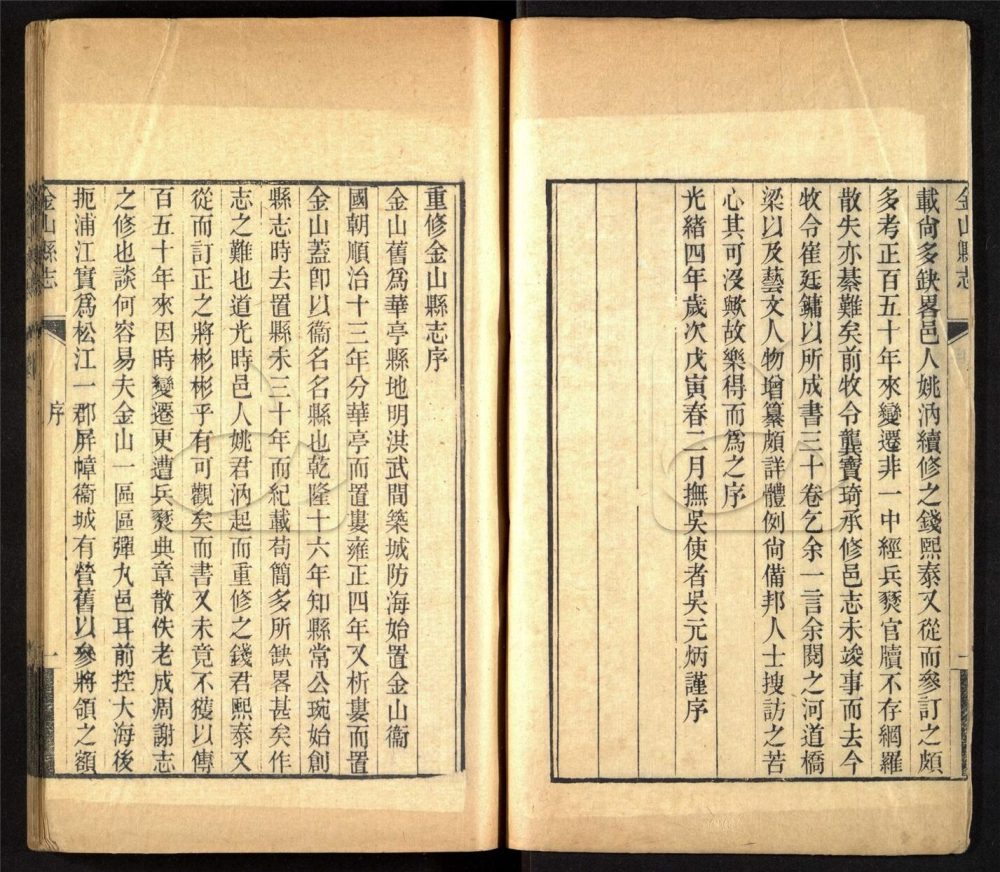 金山縣志
載尙多缺畧邑人姚汭續修之錢熙泰又從而參訂之頗
多考正百五十年來變遷非一中經兵燹官牘不存網羅
散失亦綦難矣前牧令龔寶琦承修邑志未竣事而去今
牧令崔廷鏞以所成書三十卷乞余一言余閱之河道橋
梁以及藝文人物增纂頗詳體例尙備邦人士搜訪之苦
心其可沒歟故樂得而爲之序
光緖四年歲次戊寅春二月撫吳使者吳元炳謹序
重修金山縣志序
金山舊爲華亭縣地明洪武間築城防海始置金山衞
國朝順治十三年分華亭而置婁雍正四年又析婁而置
金山蓋卽以衞名名縣也乾隆十六年知縣常公琬始創
縣志時去置縣未三十年而紀載苟簡多所缺畧甚矣作
志之難也道光時邑人姚君汭起而重修之錢君熙泰又
從而訂正之將彬彬乎有可觀矣而書又未竟不獲以傳
百五十年來因時變遷更遭兵燹典章散佚老成凋謝志
之修也談何容易夫金山一區區彈丸邑耳前控大海後
扼浦江實爲松江一郡屏幛衞城有營舊以參將領之額
金山縣志 序 一